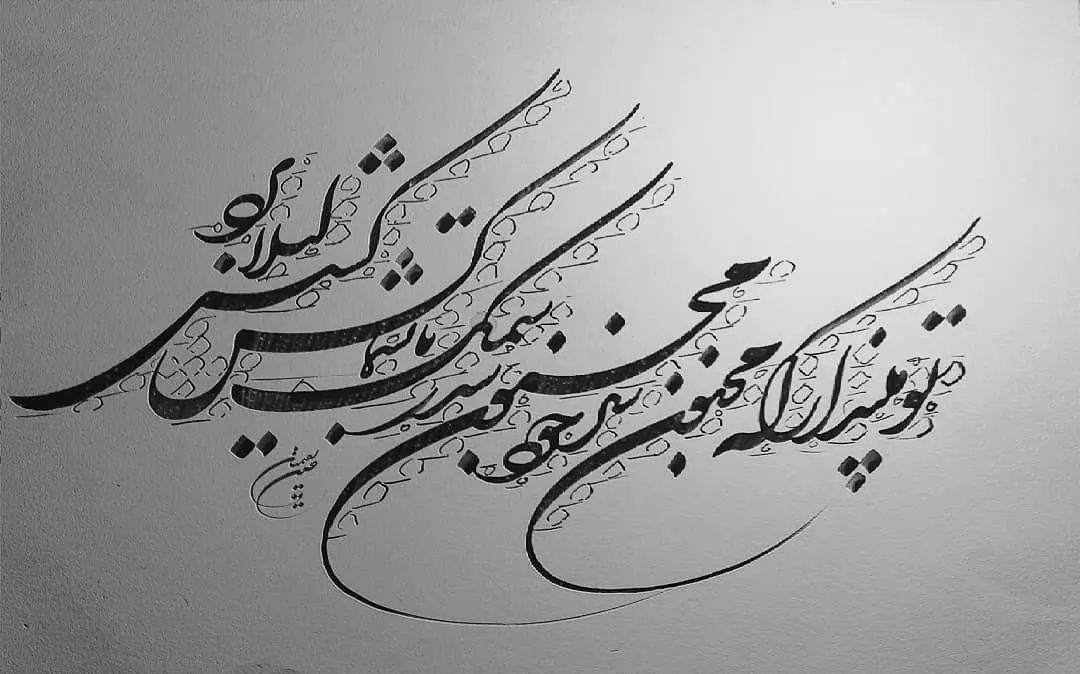 تو مپندار که مجنون سر خود مجنون شد
از سمک تا به سماکش کشش لیلا برد